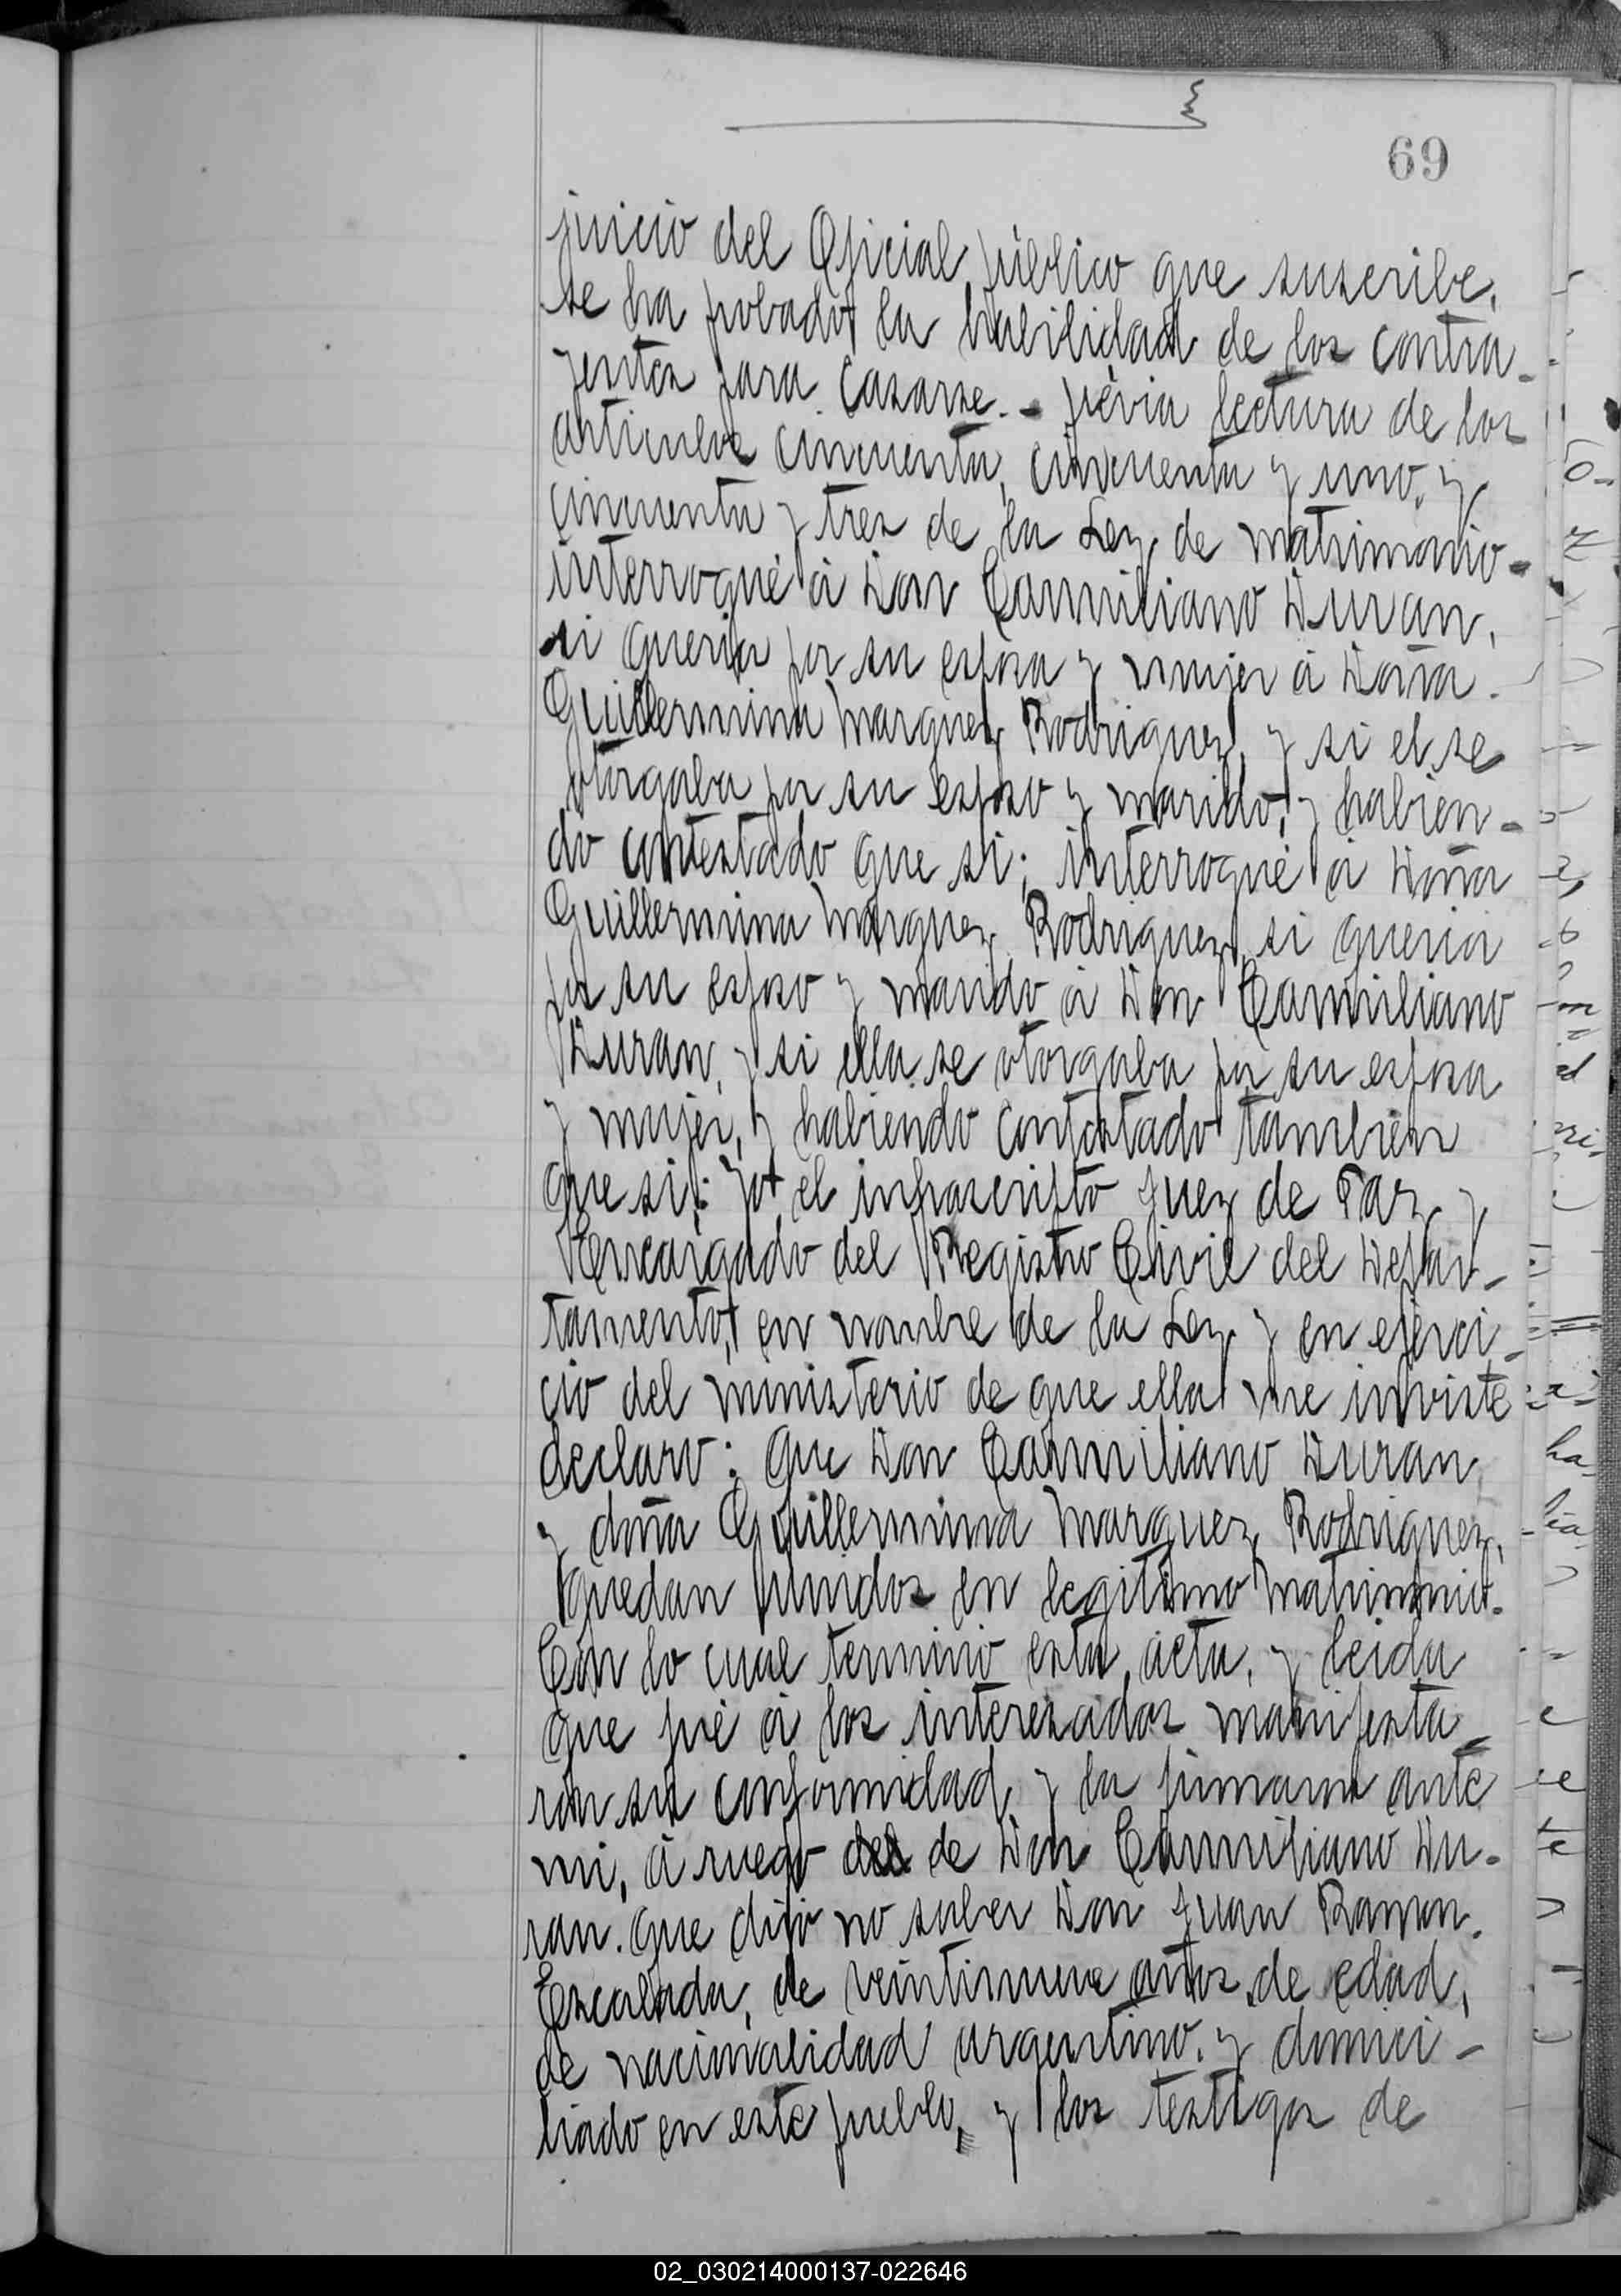 69
juicio del Oficial público que suscribe,
se ha probado la habilidad de los contra-
yentes para casarse.- prévia lectura de los
articulos cincuenta, cincuenta y uno, y
cincuenta y tres de la Ley de matrimonio-
interrogué á Don Camiliano Duran,
si queria por su esposa y mujer á Doña
Guillermina Marquez Rodriguez, y si el se
otorgaba por su esposo y marido, y habien-
do contestado que si; interrogué á Doña
Guillermina Marquez Rodriguez, si queria
por su esposo y marido á Don Camiliano
Duran, y si ella se otorgaba por su esposa
y mujer, y habiendo contestado tambien
que si; Yo el infrascripto Juez de Paz y
Encargado del Registro Civil del Depar-
tamento, en nombre de la Ley y en ejerci-
cio del ministerio de que ella me inviste
declaro: Que Don Camiliano Duran,
y doña Guillermina Marquez Rodriguez,
quedan unidos en legitimo matrimonio.
Con lo cual terminó esta acta, y leida
que fué á los interesados manifesta-
ron su conformidad y la firmaron ante
mi, á ruego de Don Camiliano Du-
ran. que dijo no saber Don Juan Ramon.
Escalada, de veintinueve años de edad,
de nacionalidad argentino. y domici-
liado en este pueblo, y los testigos de
02_030214000137-022646